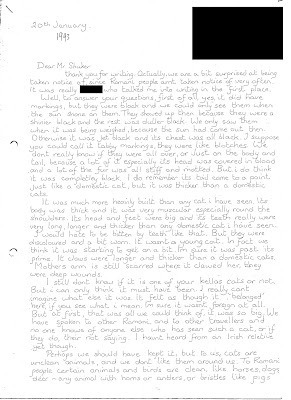 20th January.
1993
Dear Mr Shuker
thank you for writing. Actually, we are a bit surprised at being
taken notice of, since Romani people arnt taken notice of very often.
It was really who talked me into writing in the first place.
Well, to answer your questions, first of all, yes it did have
markings, but they were black and we could only see them when
the sun shone on them. They showed up then because they were a
shinier black and the rest was duller black. We only saw them
when it was being weighed, because the sun had come out then.
Otherwise it was jet black and its chest was all black. I suppose
you could call it tabby markings, they were like blotches. We
dont really know if they were all over, or just on the body and
tail, because a lot of it especially its head was covered in blood
and a lot of the fur was all stiff and matted. But I do think
it was completely black. I do remember its tail came to a point
just like a domestic cat, but it was thicker than a domestic
cats.
It was much more heavily built than any cat i have seen. Its
body was thick and it was very muscular especially round the
shoulders. Its head and feet were big and its teeth really were
very long, longer and thicker than any domestic cat i have seen.
I would hate to be bitten by teeth like that. But they were
discoloured and a bit worn. It wasnt a young cat. In fact we
think it was starting to get on a bit. Im sure it was past its
prime. It claws were longer and thicker than a domestic cats.
Mothers arm is still scarred where it clawed her. They
were deep wounds.
I still dont know if it is one of your kellas cats or not.
But i can only think it must have been. I really cant
imagine what else it was. It felt as though it "belonged"
here, if you see what i mean. Im sure it wasnt foreign at all.
But at first, that was all we could think of. It was so big. We
have spoken to other Romani, and to other travellers and
no one knows of anyone else who has seen such a cat, or if
they do, their not saying. I havnt heard from an Irish relative
yet though.
Perhaps we should have kept it, but to us, cats are
unclean animals, and we dont like them around us. To Romani
people certain animals and birds are clean, like horses, dogs
deer - any animal with horns or antlers, or bristles like pigs